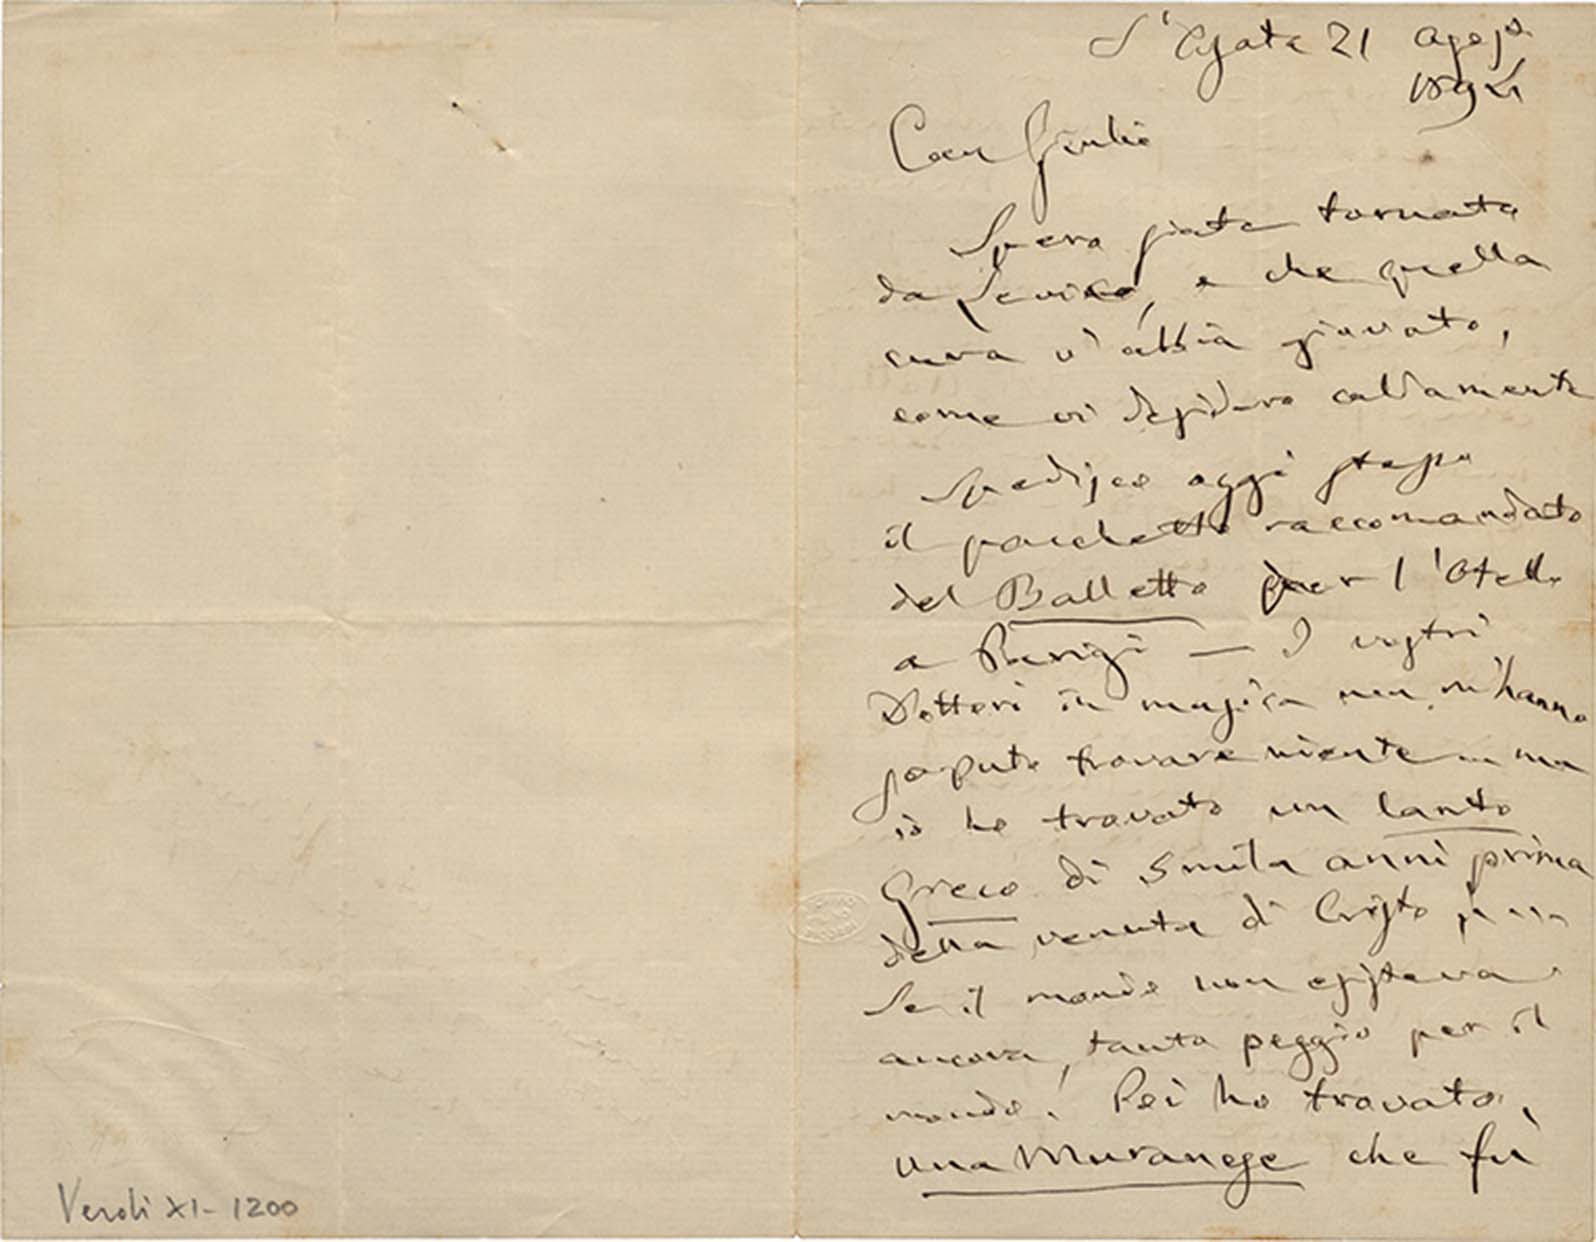 S'Agata 21 Agosto
1894
Car Giulio
Spero siate tornato
da Levico, e che quella
cura v'abbia giovato,
come vi desidero caldamente
Spedisco oggi stesso
il pacchetto raccomandato
del Balletto per l'Otello
a Parigi — I vostri
Dottori in musica non m'hanno
saputo trovare niente ... ma
io ho trovato un Canto
Greco di 5 mila anni prima
della venuta di Cristo
Se il mondo non esisteva
ancora, tanto peggio per il
mondo! Poi ho trovato,
una Muranese che fù
Verdi XI-1200